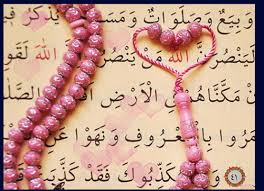 وَبِيَعٌ وَصَلَوَاتٌ وَمَسَ يُذْكَرُ ف
لَيَنْصُرَنَّ اللّٰهُ مَنْ يَنْصُرُ اللّٰهَ
نْ مَكَّنَّاهُمْ فِي الْاَرْضِ اَقَا
مَرُوا بِالْمَعْرُوفِ وَنَهَوْا عَنِ
٤١ يُكَذِّبُوكَ فَقَدْ كَذَّبَتْ